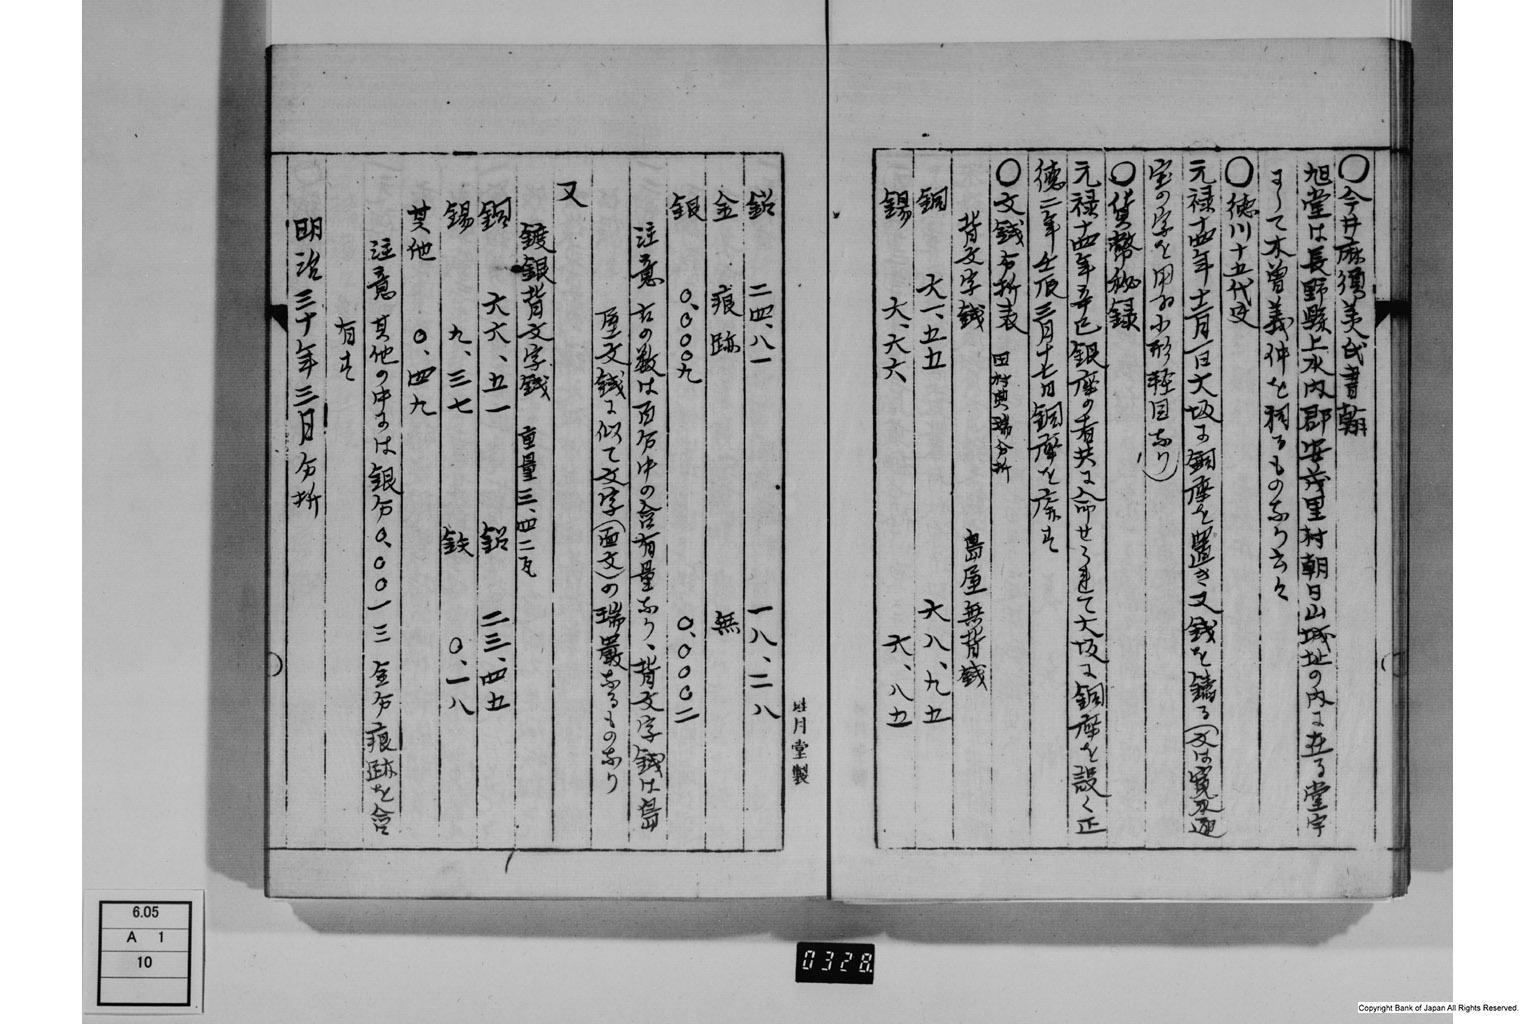 ○今井麻須美氏書翰
旭堂は長野縣上水内郡安茂里村朝日山城址の内に在る堂宇
にして木曽義仲を祠るものなり云々
○徳川十五代史
元禄十四年十二月一日大坂に銅座を置き文銭を鋳る(文は寛永通
宝の字を用ゐ小形軽目なり)
○貨幣秘録
元禄十四年辛巳銀座の者共に命せられて大坂に銅座を設く正
徳二年壬辰三月十七日銅座を廃す
○文銭分析表 田村典瑞分析
背文字銭 島屋無背銭
銅 六一、五五 六八、九五
錫 六、六六 六、八五
鉛 二四、八一 一八、二八
金 痕跡 無
銀 〇、〇〇〇九 〇、〇〇〇二
注意 右の数は百分中の含有量なり、背文字銭は島
屋文銭に似て文字(面文)の瑞嚴なるものなり
又
鍍銀背文字銭 重量三、四二瓦
銅 六六、五一 鉛 二三、四五
錫 九、三七 鉄 〇、一八
其他 〇、四九
注意 其他の中には銀分〇、〇〇一三 金分痕跡を含
有す
明治三十年三月分析
月堂製
6.05
A 1
10
0328
Copyright Bank of Japan All Rights Reserved.